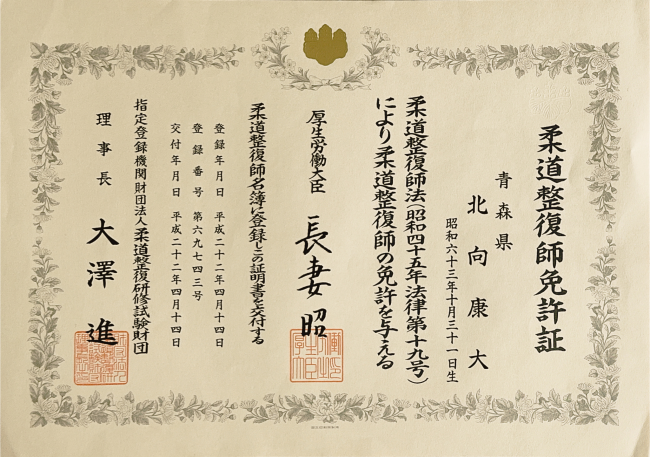 柔道整復師免許証
青森県
北向康大
昭和六十三年十月三十一日生
柔道整復師法(昭和四十五年法律第十九号)
により柔道整復師の免許を与える
厚生労働大臣 長妻昭
柔道整復師名簿に登録しこの証明書を交付する
登録年月日 平成二十二年四月十四日
登録番号 第六九七四三号
交付年月日 平成二十二年四月十四日
指定登録機関財団法人柔道整復研修試験財団
理事長 大澤進